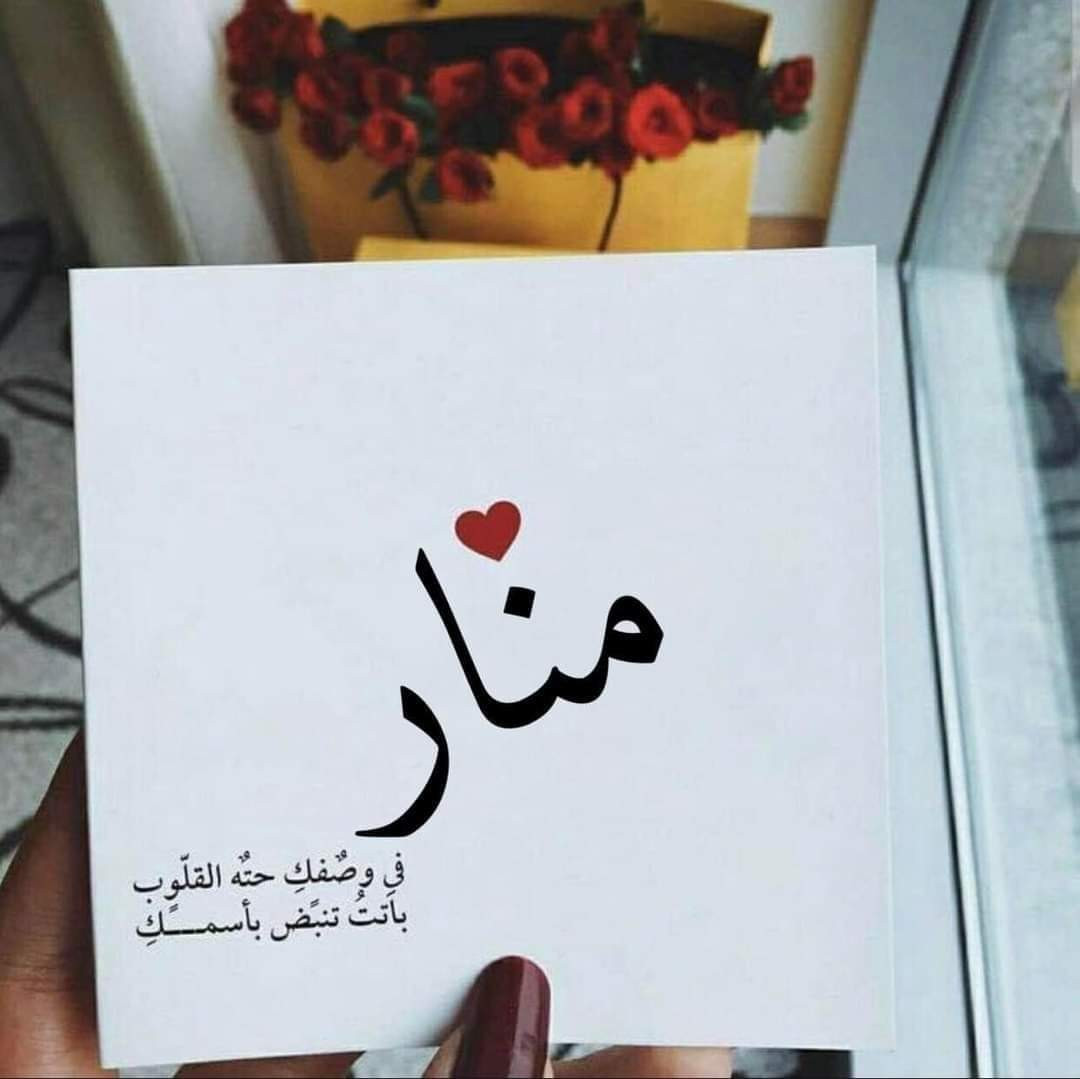 منار
في وصٌفكِ حتهٌ القلّوب
باَتتُ تنبًض بأسمـــكِ